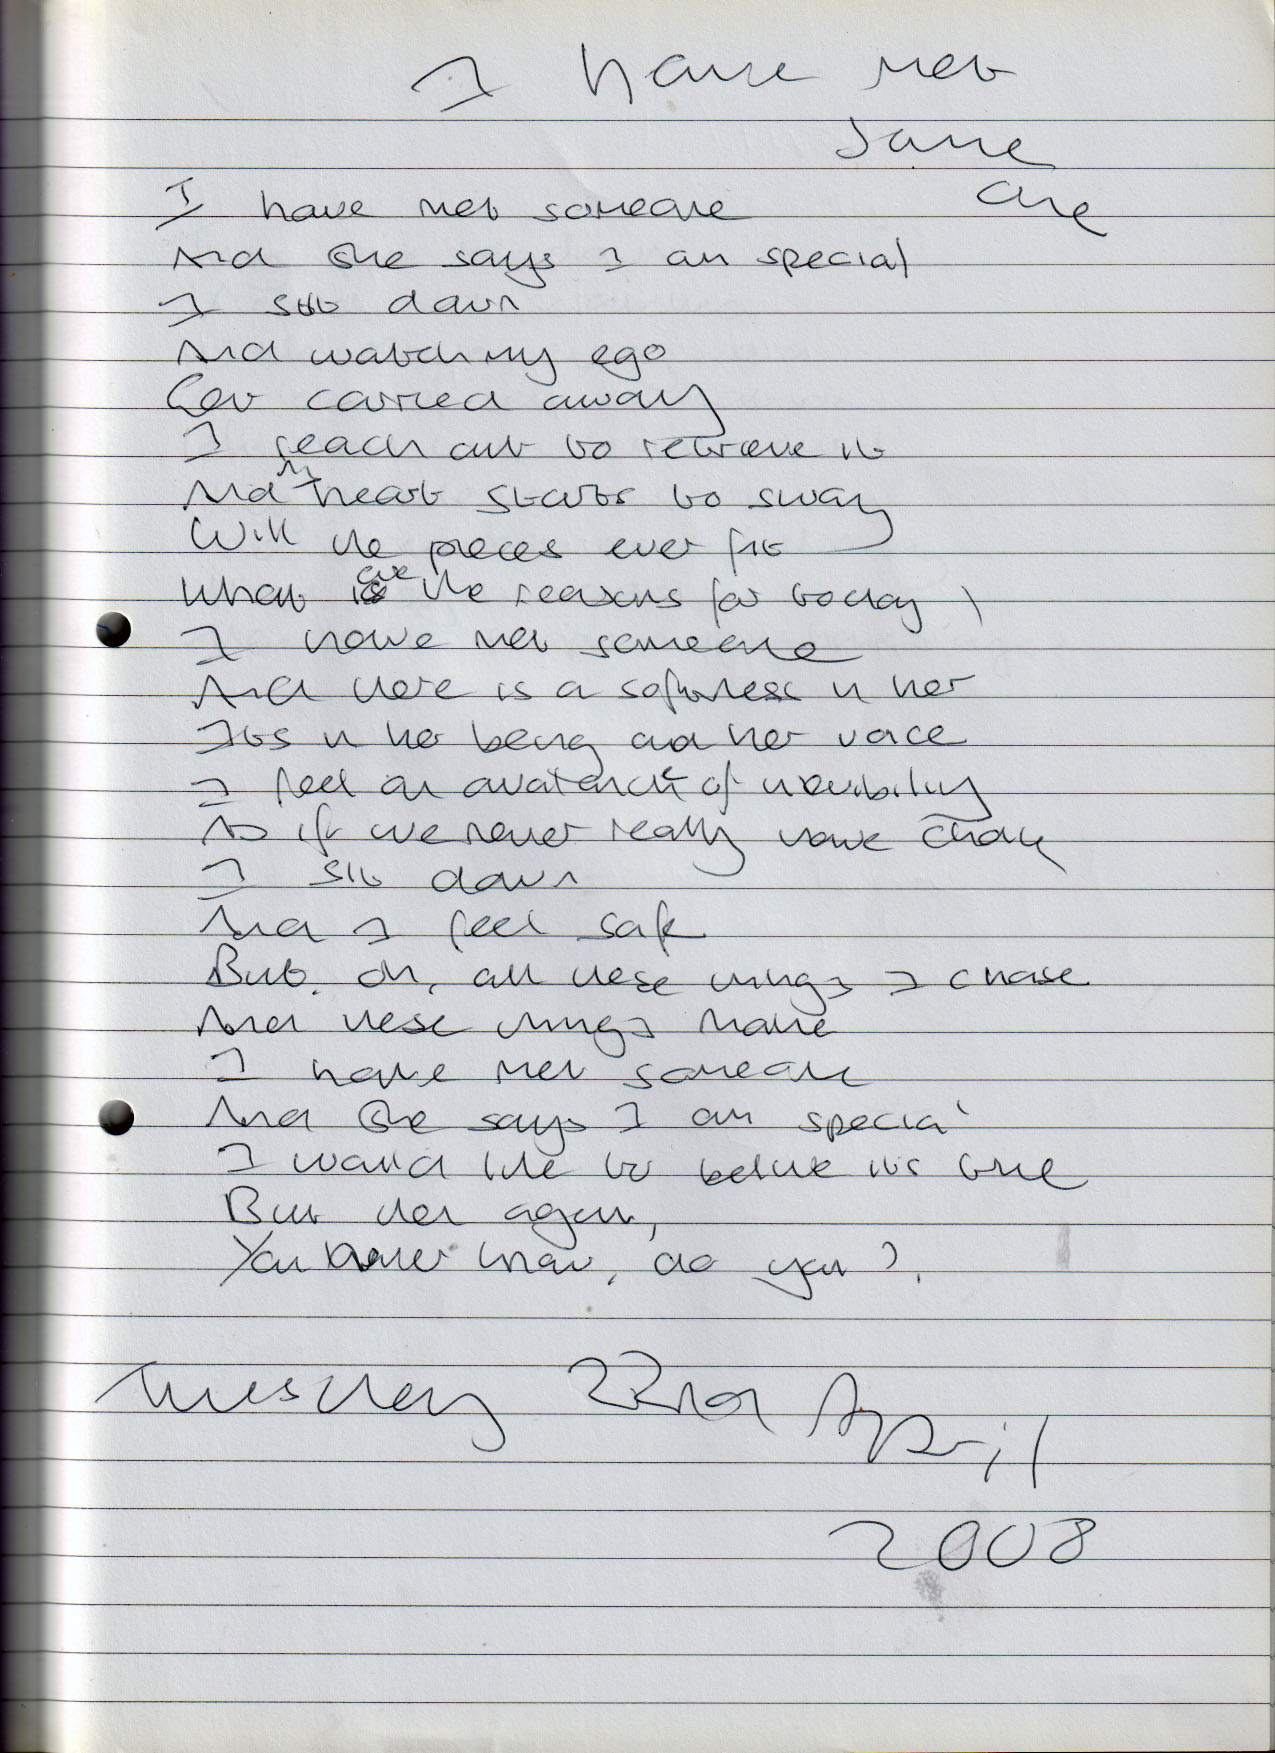 I have met
some
one
I have met someone
And she says I am special
I sit down
And watch my ego
Get carried away
I reach out to retrieve it
And my heart starts to sway
Will the pieces ever fit
What are the reasons for today
I have met someone
And there is a softness in her
Its in her being and her voice
I feel an avalanche of
As if we never really have choice
I sit down
And I feel safe
But, oh, all these things I chase
And these things
I have met someone
And she says I am special
I would like to believe its true
But then again,
You never know, do you?
Tuesday 22nd April
2008